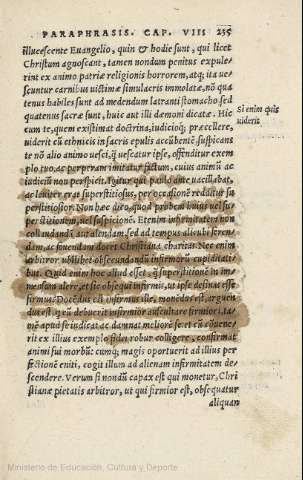 PARAPHRASIS. CAP. VIII 235
illucescente Euangelio, quin & hodie sunt, qui licet
Christum agnoscant, tamen nondum penitus expule-
rint ex animo patriæ religionis horrorem, atq; ita ve-
scuntur carnibus uictimæ simulacris immolatæ, nō qua
tenus habiles sunt ad medendum latranti stomacho sed
quatenus sacræ sunt, huic aut illi dæmoni dicatæ. Hic
cum te, quem existimat doctrina, iudicioq; præcellere,
uiderit cū ethnicis in sacris epulis accūbentē: suspicans
te nō alio animo uesci, q̃ uescatur ipse, offenditur exem
plo tuo, ac perperam imitatur factum, cuius animū ac
iudiciū non perspicit. Igitur qui paulo ante uacillabat,
ac leuiter erat superstitiosus, per occasionē redditur su
perstitiosior. Non hæc dico, quod probem huius uel su-
perstitionem, uel suspicionē. Etenim infirmitatem non
collaudandā aut alendam, sed ad tempus alicubi feren-
dam, ac fouendam docet Christiana charitas. Nec enim
arbitror ubilibet obsecundandū infirmorū cupiditati-
bus. Quid enim hoc aliud esset, q̃ superstitionē in im
mensum alere, et sic obsequi infirmis, ut ipse desinas esse
firmus? Docēdus est infirmus ille, monēdus est, arguen
dus est, q; cū debuerit infirmior auscultare firmiori, ta-
mē apud se iudicat ac damnat meliorē se: et cū
rit ex illius exemplo fidei robur colligere, confirmat
animi sui morbū: cumq; magis oportuerit ad illius per
fectionē eniti, cogit illum ad alienam infirmitatem de-
scendere. Verum si nondū capax est qui monetur, Chri
stianæ pietatis arbitror, ut qui firmior est, obsequatur
aliquan
Si enim quis
uiderit
Ministerio de Educación, Cultura y Deporte